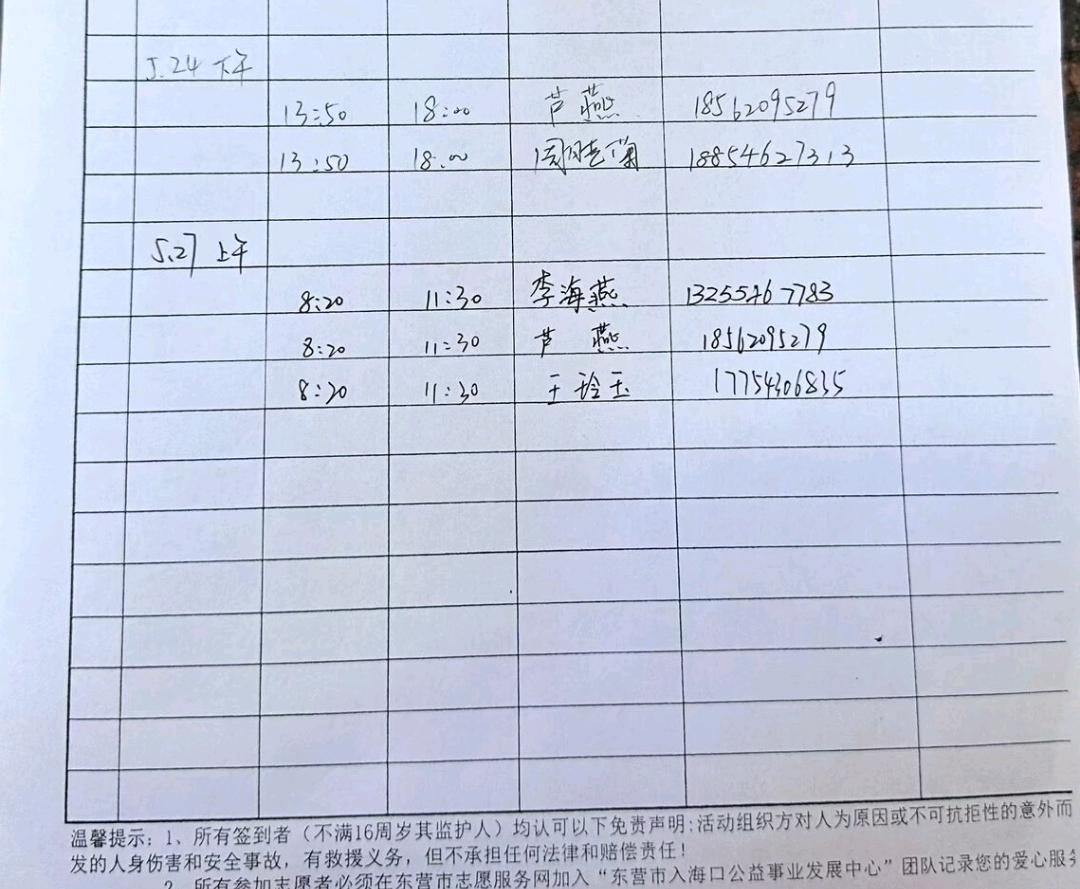 5.24 下午
13:50 18:00 芦燕 18562095279
13:50 18:00 周晓菊 18854627313
5.27 上午
8:20 11:30 李海燕 13255467783
8:20 11:30 芦燕 18562095279
8:20 11:30 王玲玉 17754306835
温馨提示：1、所有签到者（不满16周岁其监护人）均认可以下免责声明:活动组织方对人为原因或不可抗拒性的意外而
发的人身伤害和安全事故，有救援义务，但不承担任何法律和赔偿责任！
2、所有参加志愿者必须在东营市志愿服务网加入“东营市入海口公益事业发展中心”团队记录您的爱心服务